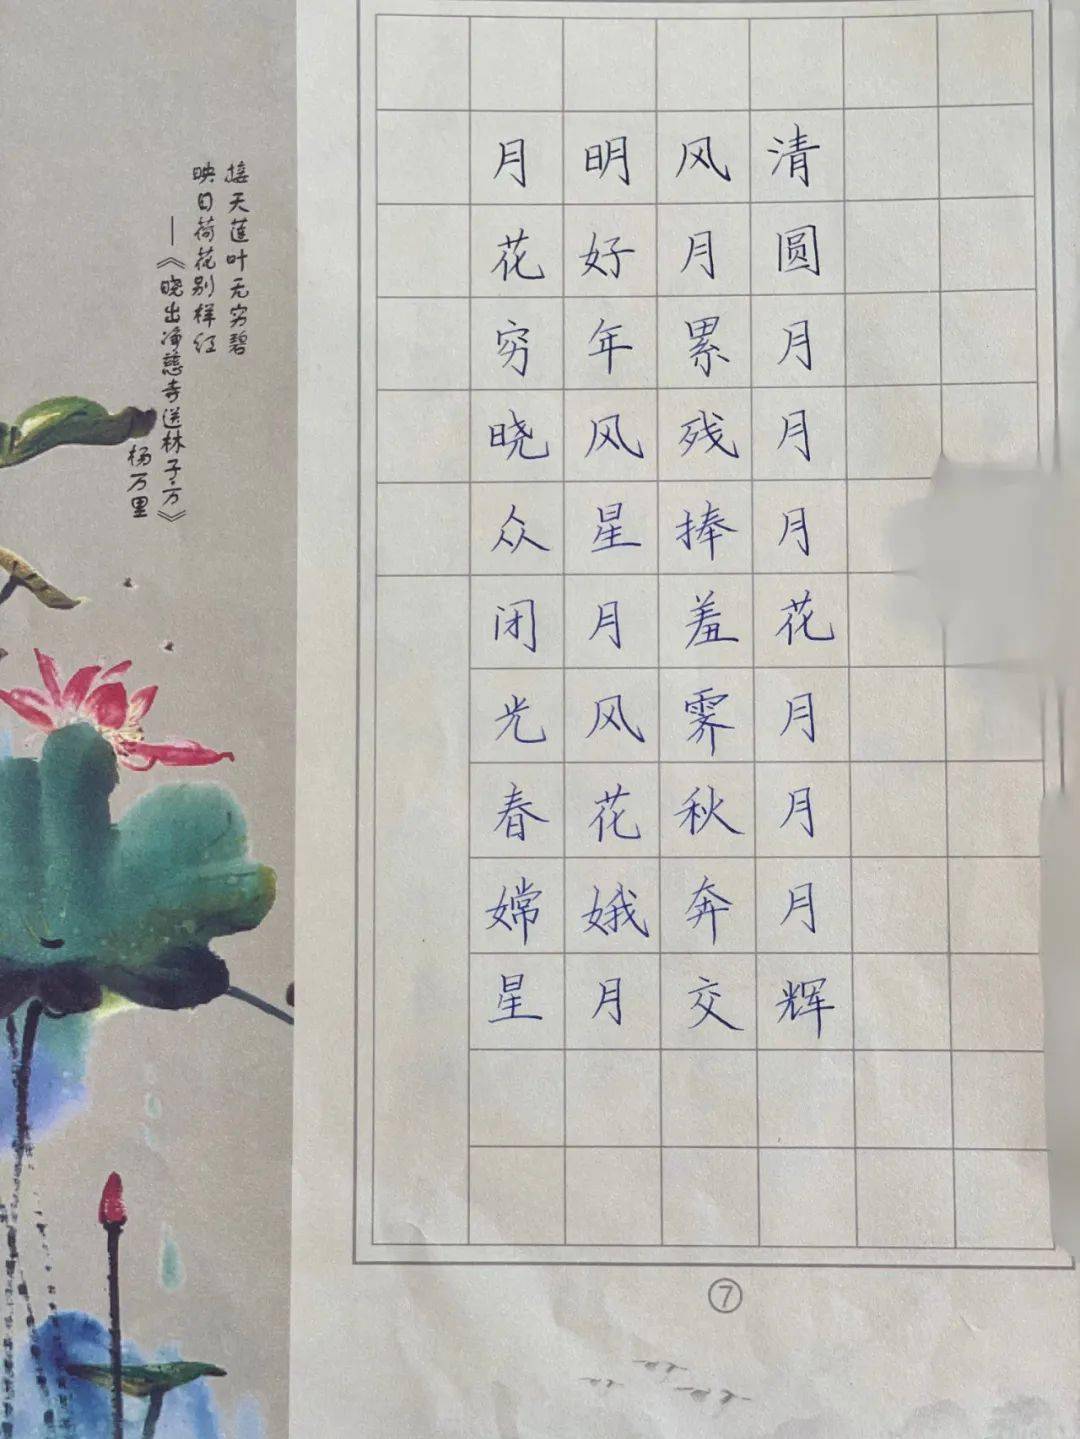 接天莲叶无穷碧
映日荷花别样红
——《晓出净慈寺送林子方》
杨万里
月明风清
花好月圆
穷年累月
晓风残月
众星捧月
闭月羞花
光风霁月
春花秋月
嫦娥奔月
星月交辉
⑦